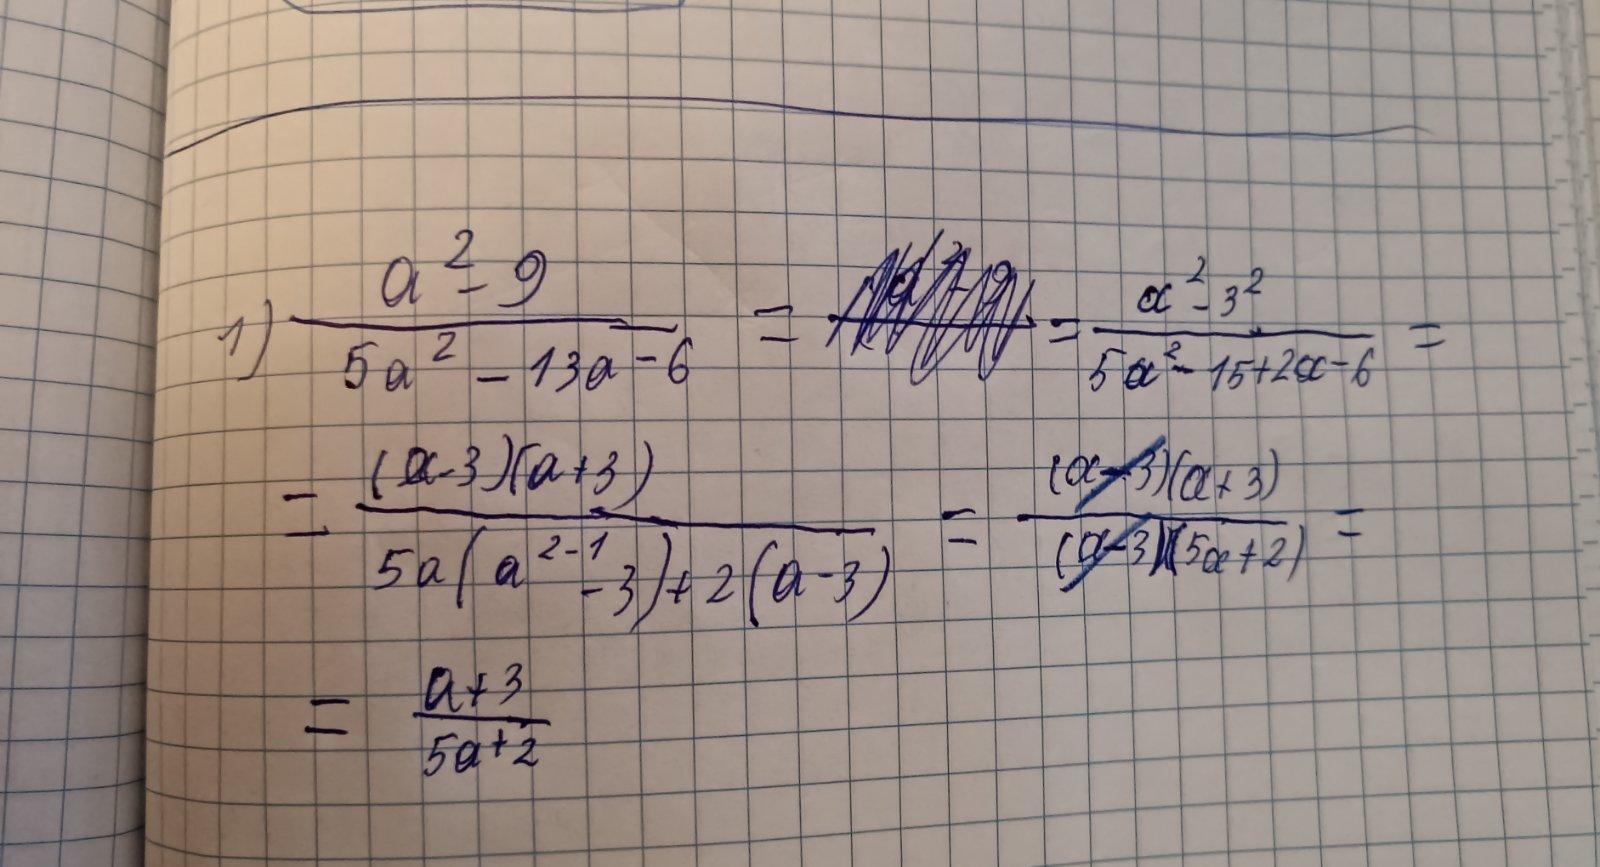 1) (a² - 9)/(5a² - 13a - 6) = = (a² - 3²)/(5a² - 15 + 2a - 6) =
= ((a - 3)(a + 3))/(5a(a²⁻¹ - 3) + 2(a - 3)) = ((a - 3)(a + 3))/((a - 3)(5a + 2)) =
= (a + 3)/(5a + 2)